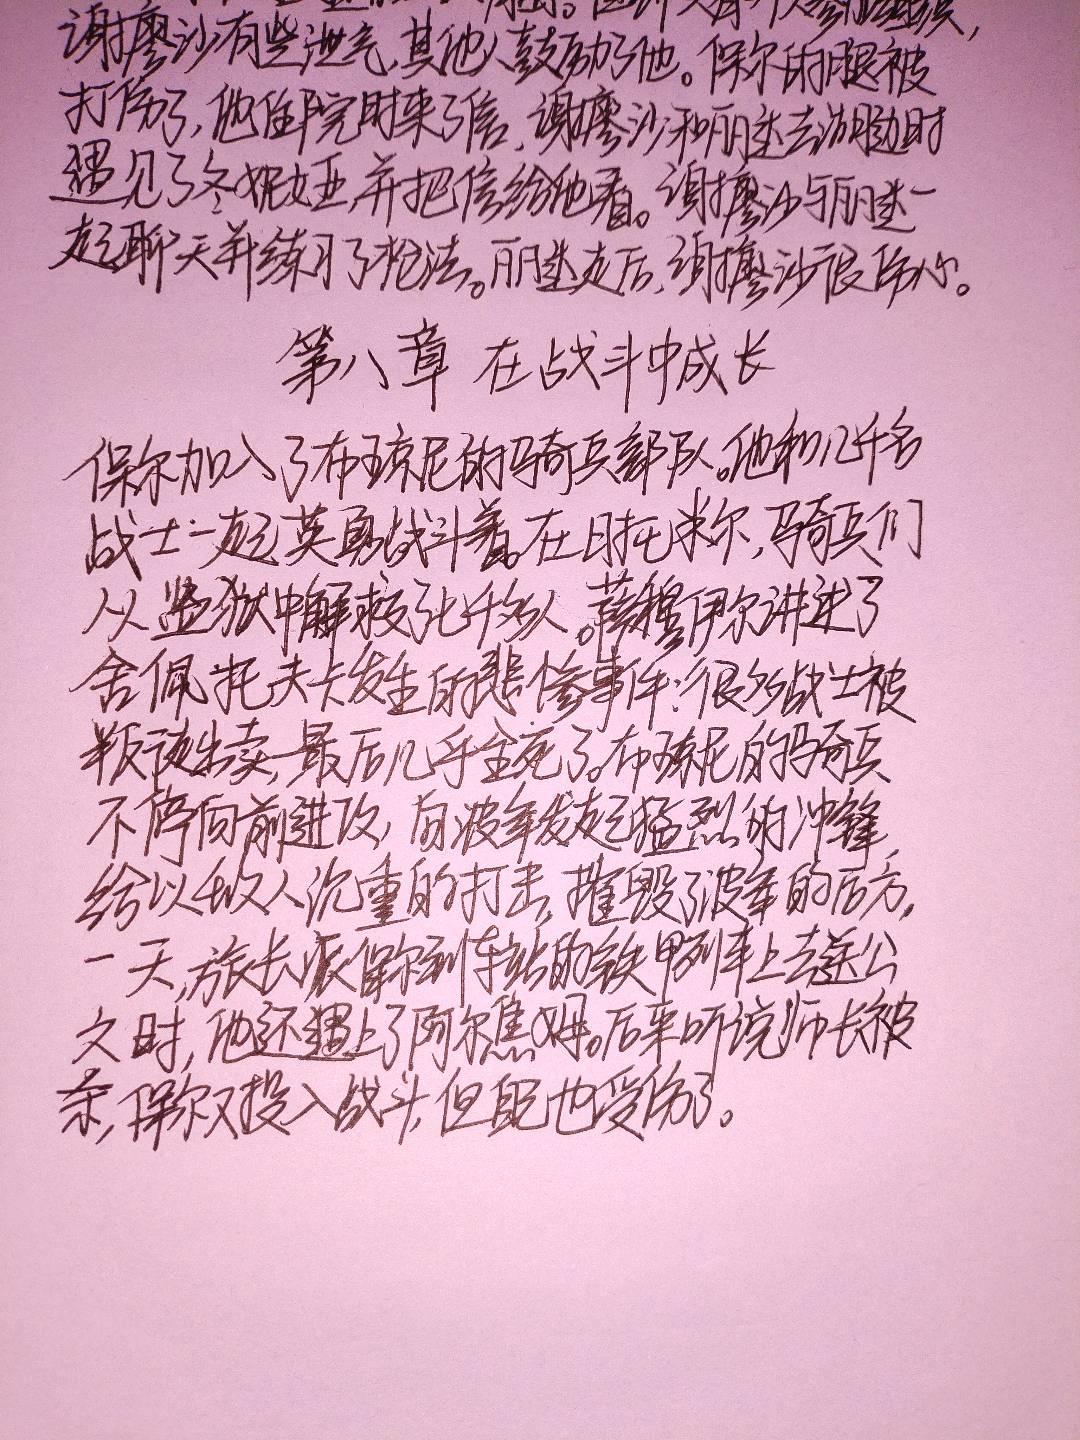 谢廖沙有些泄气,其他人鼓励了他。保尔的腿被
打伤了,他住院时来了信,谢廖沙和丽达去活动时
遇见了冬妮娅,并把信给他看。谢廖沙与丽达一
起聊天并练习了枪法。丽达走后,谢廖沙很伤心。
第八章 在战斗中成长
保尔加入了布琼尼的骑兵部队。他和几千名
战士一起英勇战斗着。在日托米尔,骑兵们
从监狱中解救了七千多人。萨穆伊尔讲述了
舍佩托夫卡发生的悲惨事件:很多战士被
叛徒出卖,最后几乎全死了。布琼尼的骑兵
不停向前进攻,向波军发起猛烈的冲锋,
给以敌人沉重的打击,摧毁了波军的后方,
一天,旅长派保尔到车站的铁甲列车上去送公
文时,他还遇上了阿尔焦姆。后来听说师长被
杀,保尔又投入战斗,但也受伤了。